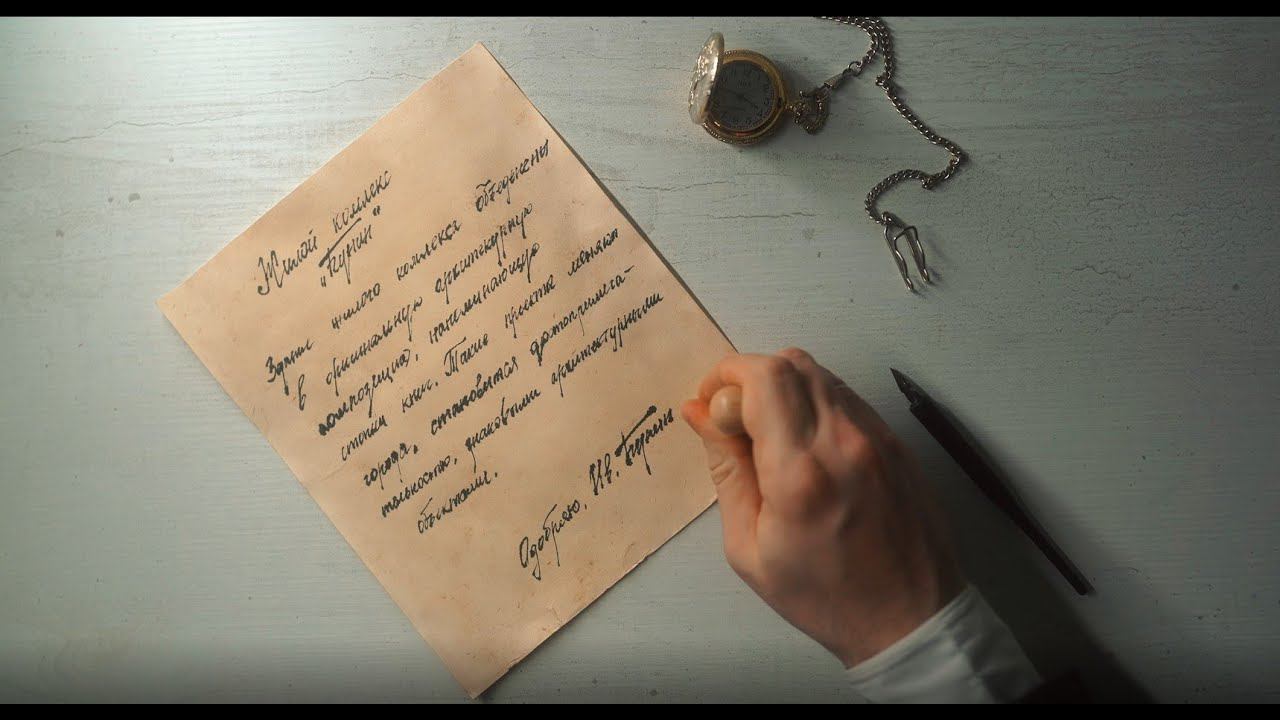 Жилой комлекс
"Бунин"
Здания жилого комлекса объеденены
в оригинальную архитектурную
композицию, напоминающую
стопки книг. Такие проекты меняют
города, становятся достопримеча-
тельностью, знаковыми архитектурными
объектами.
Одобряю, Ив. Бунин